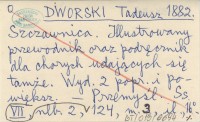 DWORSKI Tadeusz 1882.
Szczawnica. Illustrowany
przewodnik oraz podręcznik
dla chorych udających się
tamże. Wyd. 2 popr. i po-
większ. — Przemyśl
VII nlb. 2, V 124, m. 3 16°